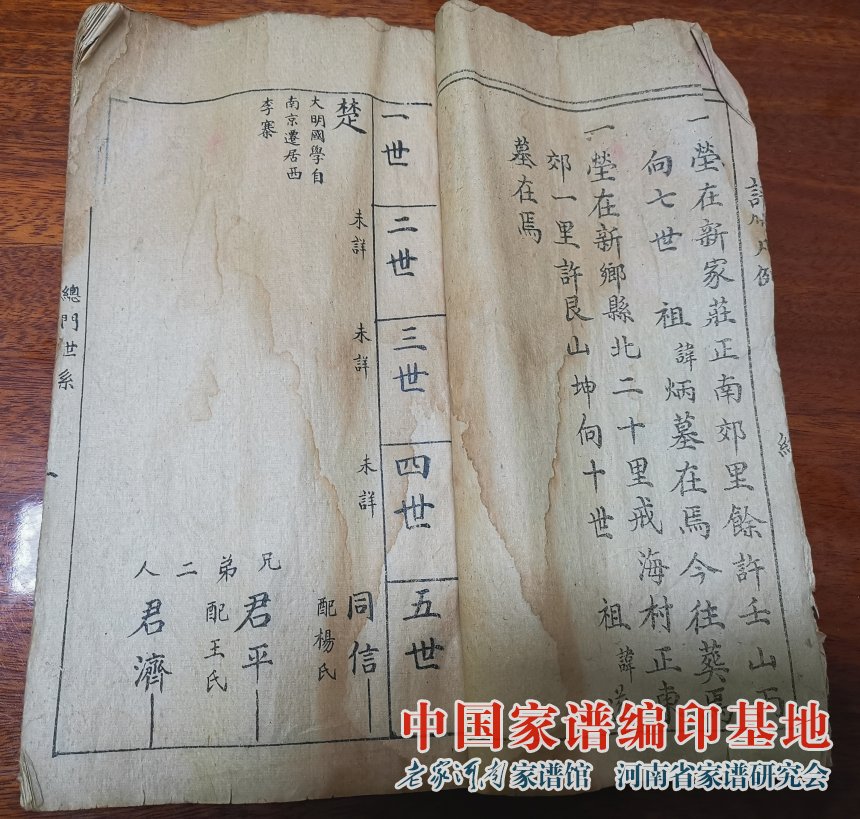 一塋在新家莊正南郊里餘許壬山丙
向七世 祖諱炳墓在焉今往葬焉
一塋在新鄉縣北二十里戒海村正東
郊一里許艮山坤向十世 祖諱
墓在焉
一世
二世
三世
四世
五世
楚
大明國學自
南京遷居西
李寨
未詳
未詳
未詳
同信
配楊氏
兄弟二人
君平
配王氏
君濟
總門世系
中国家谱编印基地
老家河南家谱馆 河南省家谱研究会